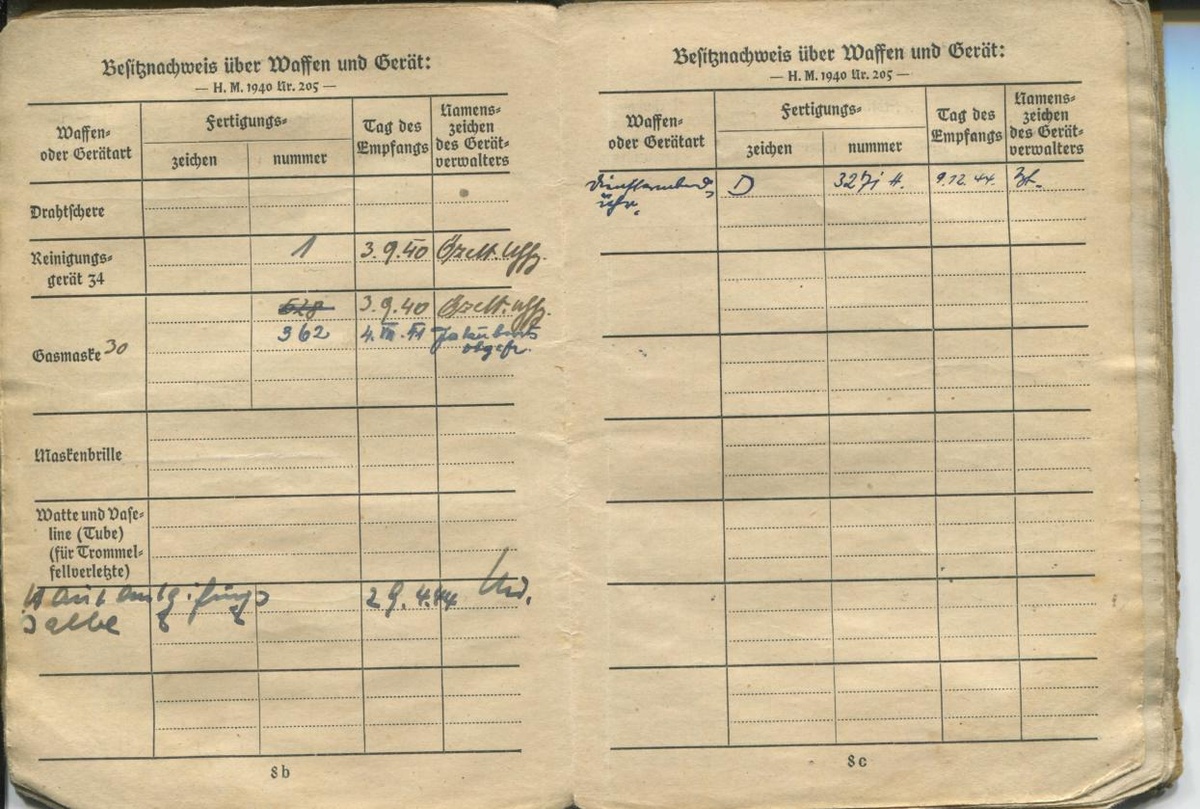 Besitznachweis über Waffen und Gerät:
— H. M. 1940 Nr. 205 —
Waffen-
oder Gerätart
Fertigungs-
zeichen
nummer
Tag des
Empfangs
Namens-
zeichen
des Gerät-
verwalters
Drahtschere
Reinigungs-
gerät 34
1 3.9.40 Uffz.
Gasmaske 30
628 3.9.40 Uffz.
362 4.
Obgefr.
Maskenbrille
Watte und Vase-
line (Tube)
(für Trommel-
fellverletzte)
Hautentgiftungs
Salbe
29.4.44
8b
Besitznachweis über Waffen und Gerät:
— H. M. 1940 Nr. 205 —
Waffen-
oder Gerätart
Fertigungs-
zeichen
nummer
Tag des
Empfangs
Namens-
zeichen
des Gerät-
verwalters
Dienstarmband
uhr.
D 9.12.44.
8c